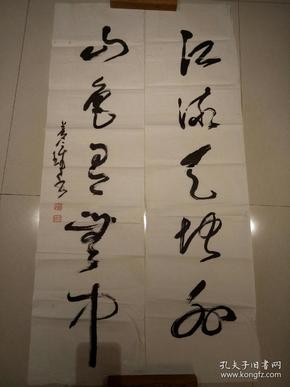 江流天地外
山色有无中
孔夫子旧书网
www.kongfz.com